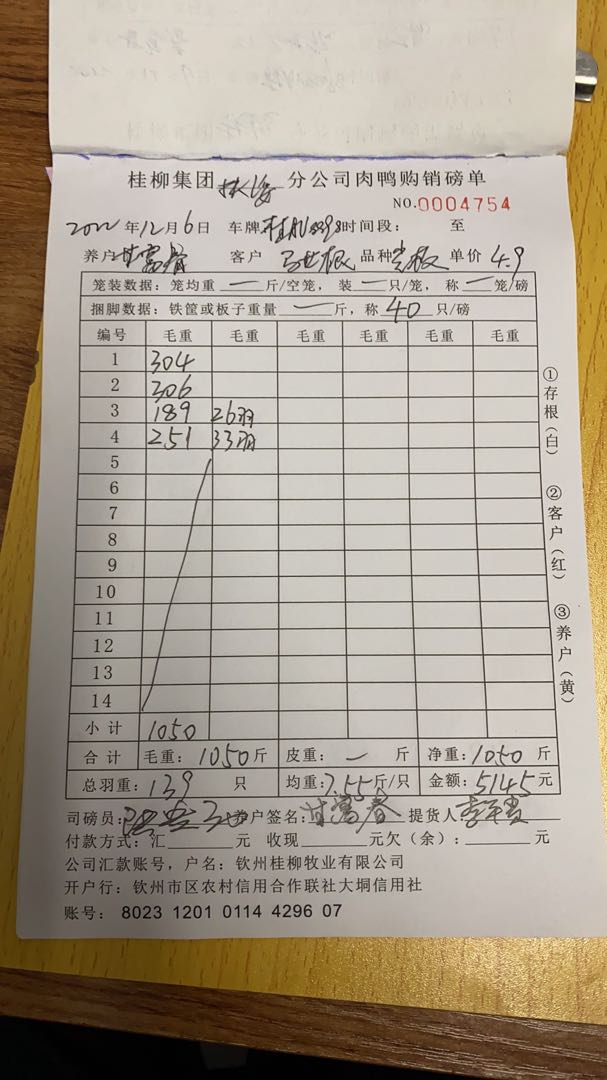 桂柳集团 分公司肉鸭购销磅单
NO.0004754
2022年12月6日 车牌 时间段： 至
养户 甘富春 客户 品种 单价 4.9
笼装数据：笼均重 一 斤/空笼，装 一 只/笼，称 一 笼/磅
捆脚数据：铁筐或板子重量 一 斤，称 40 只/磅
编号 毛重 毛重 毛重 毛重 毛重 毛重
1 304
2 306
3 189 26羽
4 251 33羽
5
6
7
8
9
10
11
12
13
14
小计 1050
合计 毛重：1050斤 皮重：一 斤 净重：1050 斤
总羽重：139 只 均重：7.55斤/只 金额：5145元
司磅员： 养户签名：甘富春 提货人
付款方式：汇 元 收现 元欠（余）： 元
公司汇款账号，户名：钦州桂柳牧业有限公司
开户行：钦州市区农村信用合作联社大垌信用社
账号：8023 1201 0114 4296 07
①存根（白）
②客户（红）
③养户（黄）